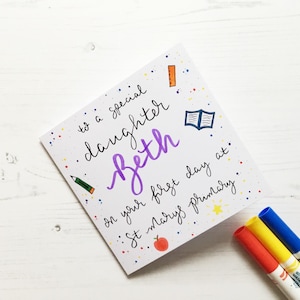 to a special
daughter
Beth
on your first day at
St Marys primary